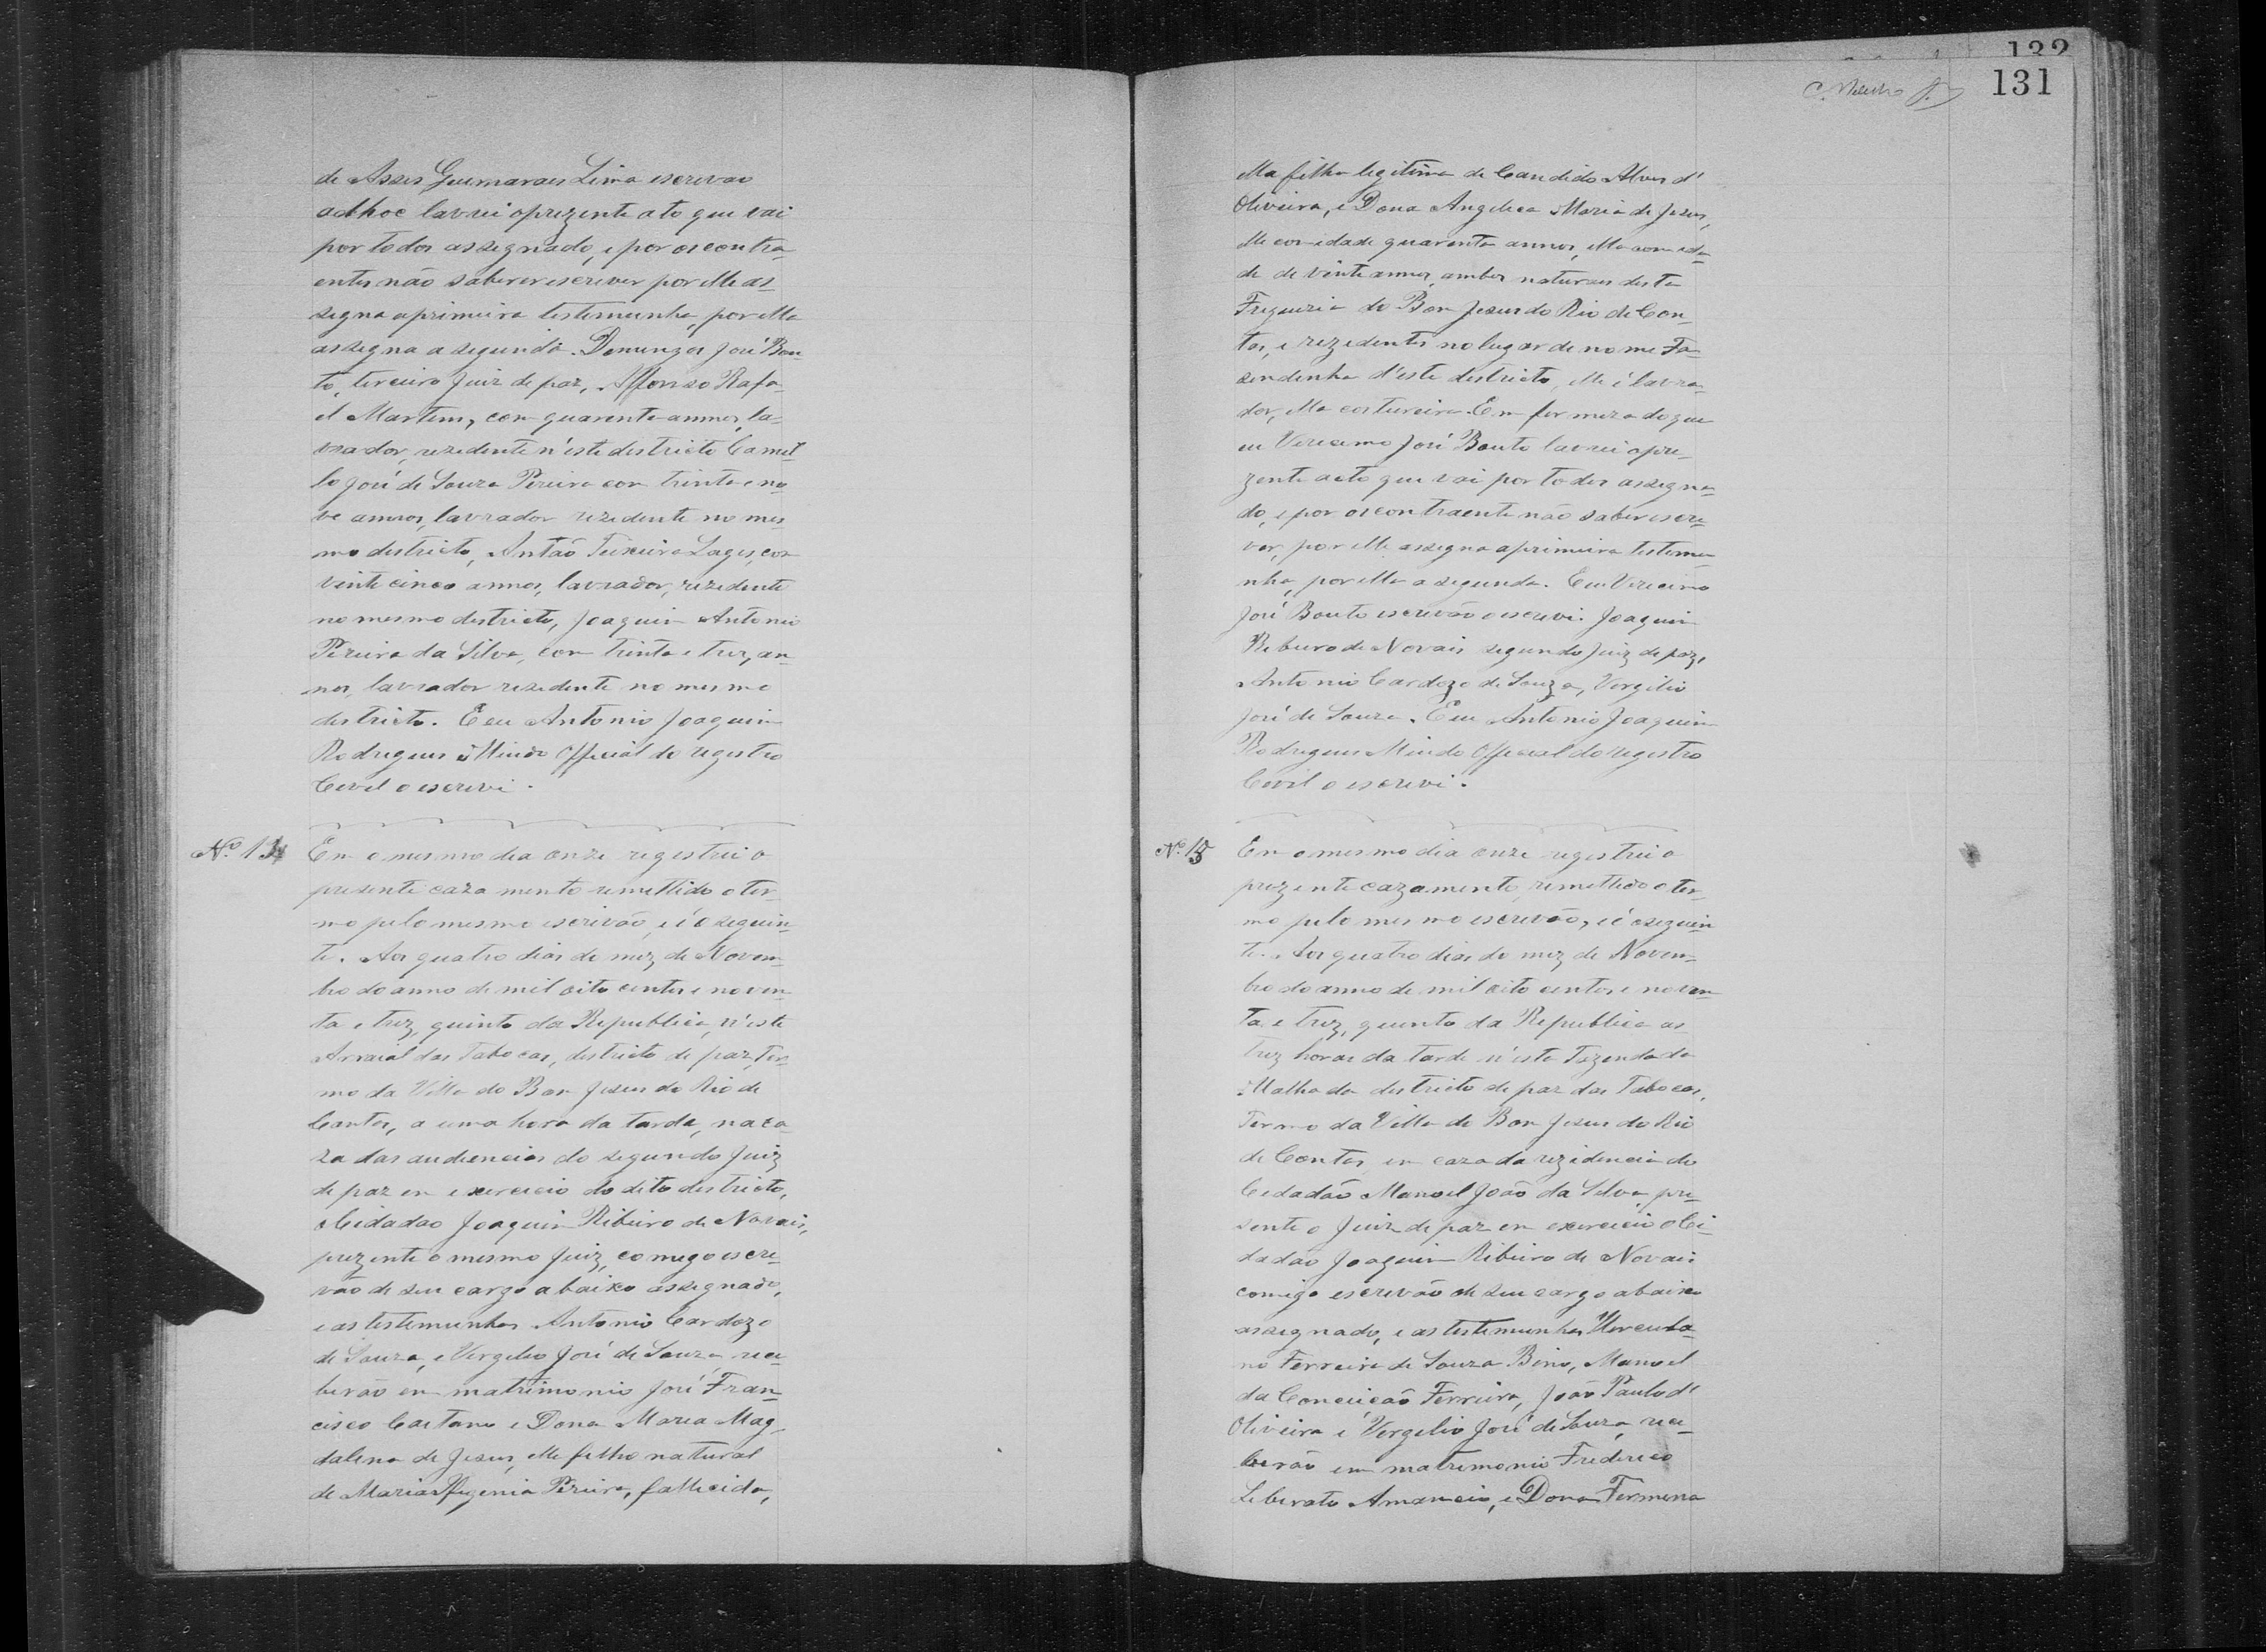 de Assis Guimarais Lima escrivão
adhoc lavrei o prezente ato que vai
por todos assegnado, e por os contra-
entes não saberer escriver por elle as-
segna a primeira testemunha, por ella
assegna a segunda. Domingos José Bou-
to, terceiro Juiz de paz, Affonso Rafa-
el Martins, com quarenta annos, la-
vrador, rezedente n'este destricto Camil-
lo José de Souza Pereira com trinta e no-
ve annos, lavrador rezedente no mes-
mo destricto, Antão Teixeira Lages, com
vinte cinco annos, lavrador, rezedente
no mesmo destricto, Joaquim Antonio
Pereira da Silva, com trinta e trez, an-
nos, lavrador rezedente no mesmo
destricto. E eu Antonio Joaquim
Rodrigues Official do registro
Cevel o escrevi.
Nº 14 Em o mesmo dia onze registrei o
presente cazamento remettido o ter-
mo pelo mesmo escrivão, e é o seguin-
te. Aos quatro dias do mez de Novem-
bro do anno de mil oito centos e noven-
ta e trez, quinto da Republica, n'este
Arraial das Tabocas, destricto de paz, Ter-
mo da Villa do Bom Jesus do Rio de
Contas, a uma hora da tarde, na ca-
za das audiencias do segundo Juiz
de paz em exercicio do dito destricto,
o Cidadao Joaquim Ribeiro de Novais,
prezente o mesmo Juiz, comego escre-
vão de seu cargo abaixo assegnado,
e as testemunhas Antonio Cardozo
de Souza, e Vergilio José de Souza, rece-
berão em matrimonio José Fran-
cisco Caetano e Dona Maria Mag-
dalena de Jesus, elle filho natural
de Maria Pereira, fallecida,
131
Ella filha legitima de Candido Alves d'
Oliveira, e Dona Angelica Maria de Jesus,
elle com idade quarenta annos, ella com ida-
de de vinte annos, ambos naturaes desta
Freguezia do Bom Jesus do Rio de Con-
tas, e rezedentes no lugar de nome Fa-
zendinha d'este destricto, elle é lavra-
dor, ella costureira. Em fermeza do que
eu Verecimo José Bouto lavrei o pre-
zente acto que vai por todos assegna-
do, e por os contraente não saber escre-
ver, por elle assegna a primeira testemu-
nha, por ella a segunda. Eu Verecimo
José Bouto escrivão o escrevi. Joaquim
Ribeiro de Novais segundo Juiz de paz,
Antonio Cardozo de Souza, Vergilio
José de Souza. E eu Antonio Joaquim
Rodrigues Official do registro
Cevil o escrevi.
Nº 15 Em o mesmo dia onze registrei o
prezente cazamento, remettido o ter-
mo pelo mesmo escrivão, e é o seguin-
te. Aos quatro dias do mez de Novem-
bro do anno de mil oito centos e noven-
ta e trez, quinto da Republica as
trez horas da tarde n'esta Fazenda da
Malhada destricto de paz das Tabocas,
Termo da Villa do Bom Jesus do Rio
de Contas, em caza da rezidencia do
Cedadão Manoel João da Silva, pre-
sente o Juiz de paz em exercicio o Ci-
dadão Joaquim Ribeiro de Novais
comigo escrivão de seu cargo abaixo
assegnado, e as testemunhas Hercula-
no Ferreira de Souza Bino, Manoel
da Conceição Ferreira, João Paulo d'
Oliveira e Vergilio José de Souza, rece-
berão em matremonio Frederico
Leberato Amancio, e Dona Fermena